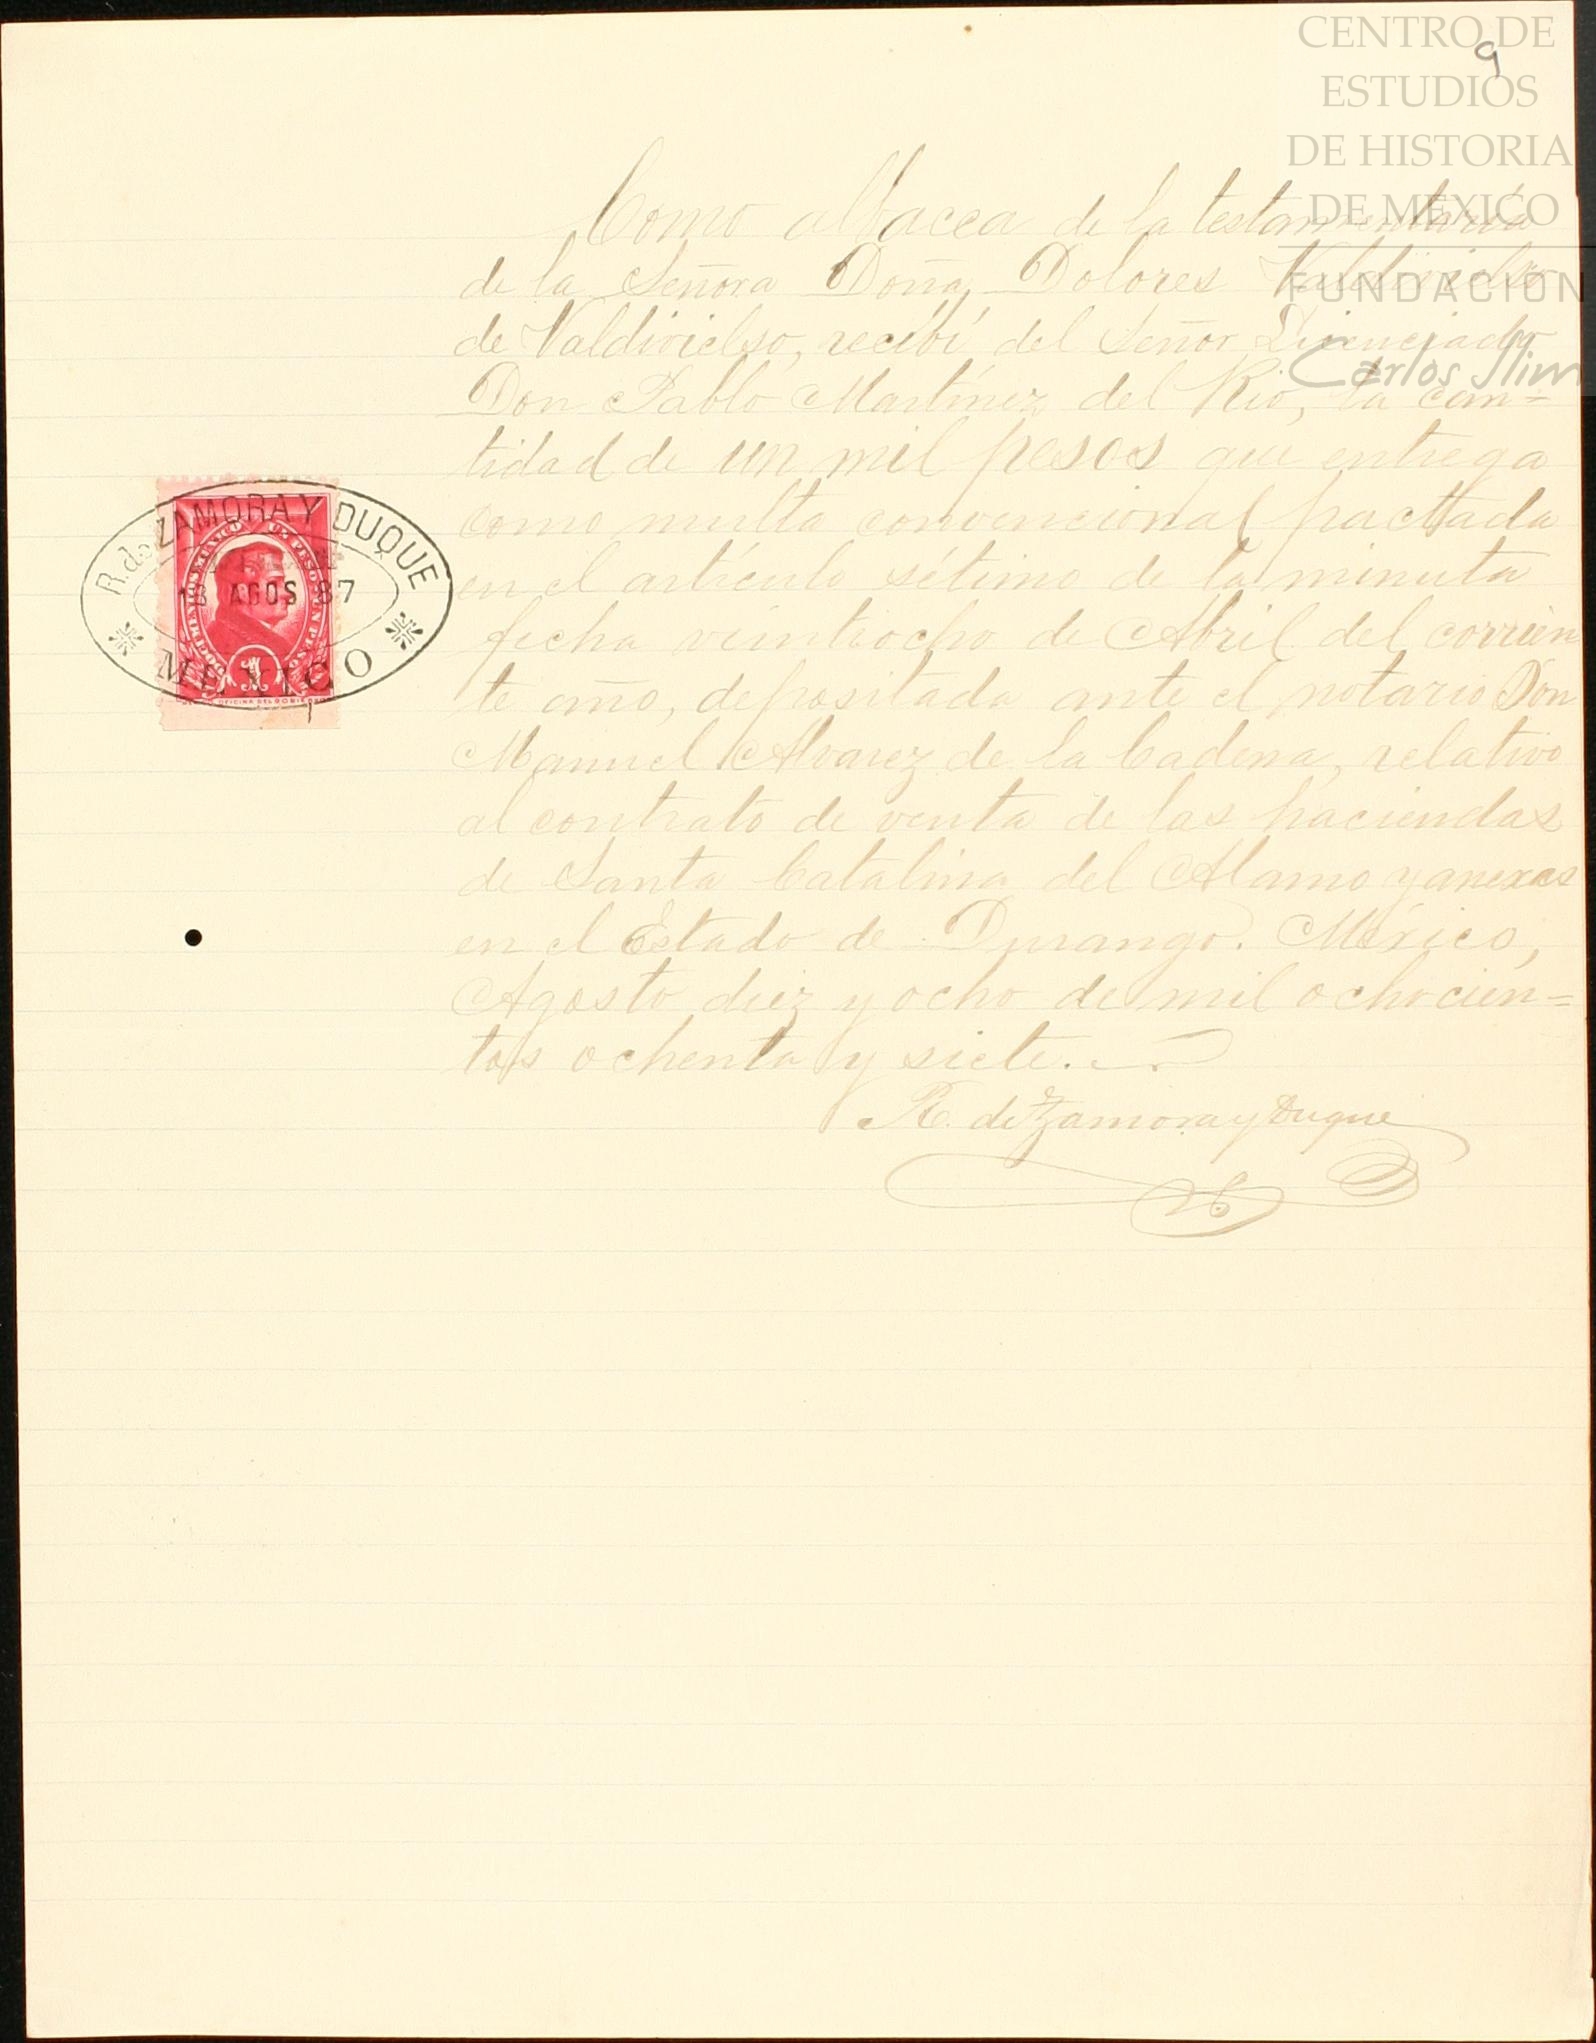 CENTRO DE
ESTUDIOS
DE HISTORIA
DE MÉXICO
FUNDACIÓN
Carlos Slim
9
Como albacea de la testamentaría
de la Señora Doña Dolores Valdivielso
de Valdivielso, recibí del Señor Licenciado
Don Pablo Martínez del Rio, la can=
tidad de un mil pesos que entrega
como multa convencional pactada
en el artículo sétimo de la minuta
fecha veintiocho de Abril del corrien
te año, depositada ante el notario Don
Manuel Alvarez de la Cadena, relativo
al contrato de venta de las haciendas
de Santa Catalina del Alamo y anexas
en el Estado de Durango. México,
Agosto diez y ocho de mil ochocien=
tos ochenta y siete.
R. de Zamora y Duque
R. de ZAMORA Y DUQUE
18 AGOS 87
MEXICO
DOCUMENTOS
UN PESO
1